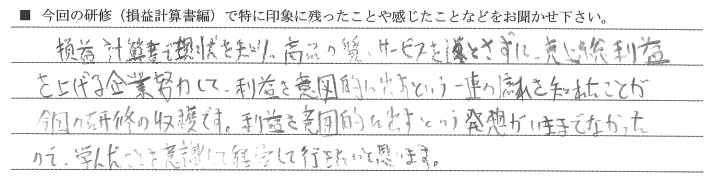 ■ 今回の研修(損益計算書編)で特に印象に残ったことや感じたことなどをお聞かせ下さい。
損益計算書で現状を知り、商品の質、サービスを落とさずに、売上総利益
を上げる企業努力して、利益を意図的に出すという一連の流れを知れたことが
今回の研修の収穫です。利益を意図的に出すという発想がいままでなかった
ので、学んだことを意識して経営して行きたいと思います。